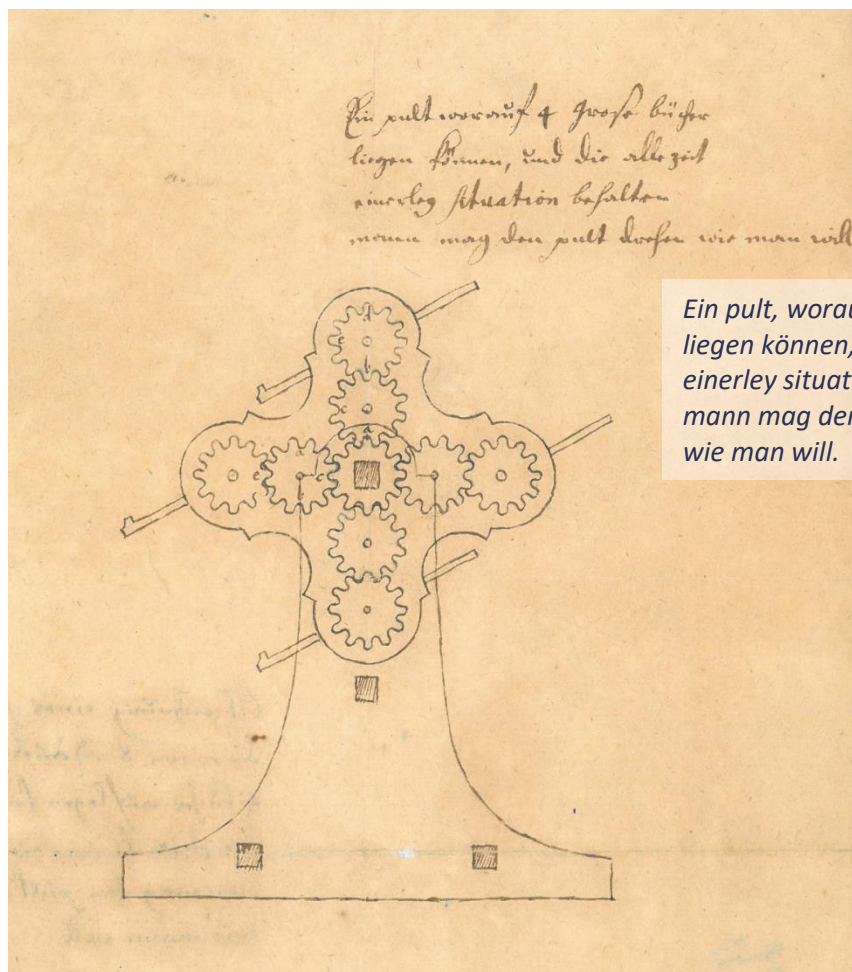 Ein pult worauf 4 grose bücher
liegen können, und die allezeit
einerley situation behalten
mann mag den pult drehen wie man will
Ein pult, worau
liegen können,
einerley situat
mann mag der
wie man will.